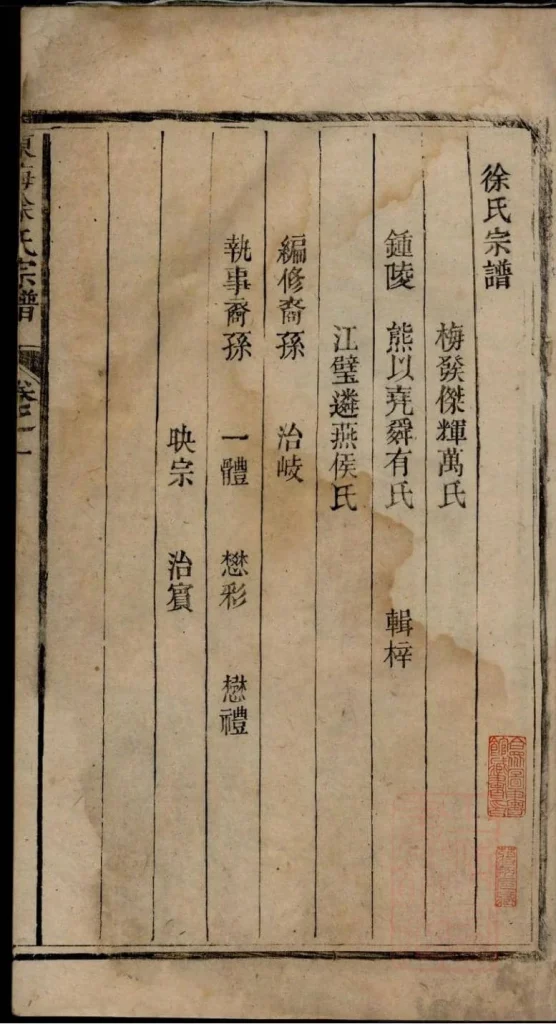 徐氏宗譜
梅發傑輝萬氏
鍾陵 熊以堯舜有氏 輯梓
江璧遴燕侯氏
編修裔孫 治岐
執事裔孫 一體 懋彩 懋禮
映宗 治賓
東海徐氏宗譜 卷之一